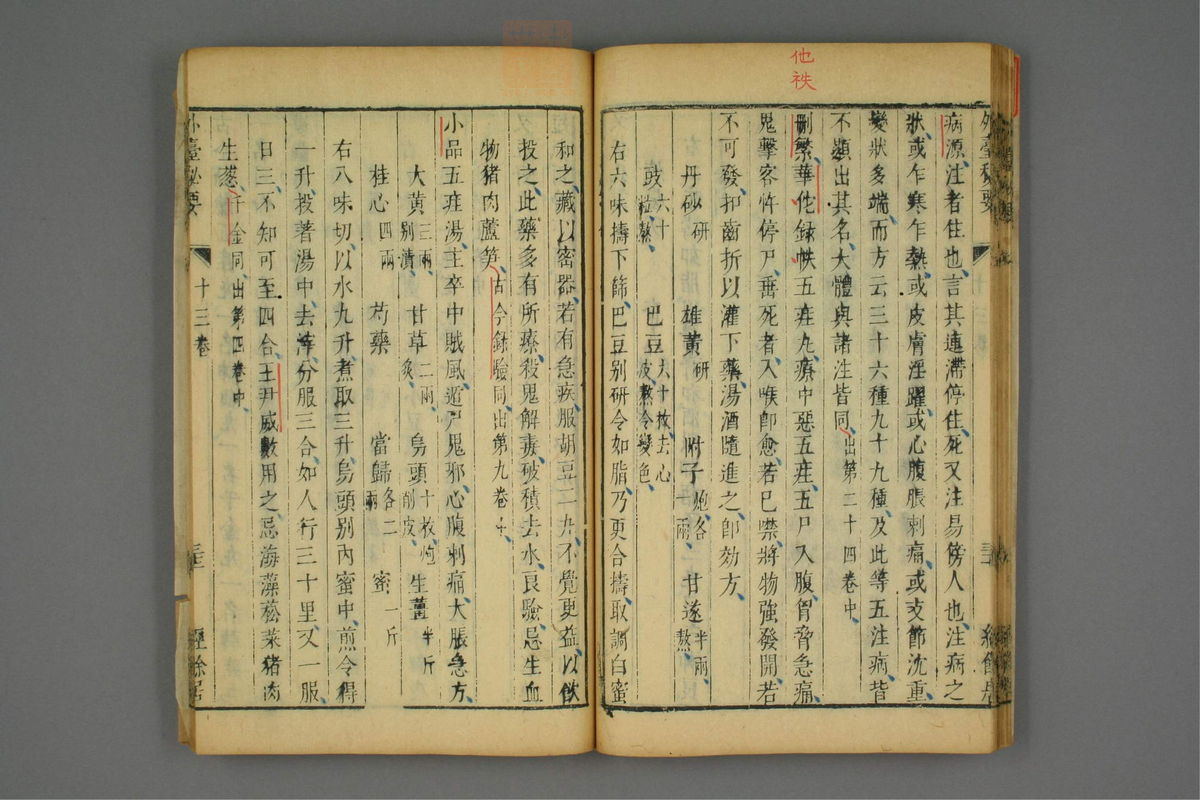 他
袟
病源注者住也言其連滯停住死又注易傍人也注病之
狀或乍寒乍熱或皮膚淫躍或心腹脹刺痛或支節沈重
變狀多端而方云三十六種九十九種及此等五注病皆
不顯出其名大體與諸注皆同出第二十四卷中
刪繁華佗錄帙五疰丸療中惡五疰五尸入腹胷脅急痛
鬼擊客忤停尸垂死者入喉卽愈若巳噤將物強發開若
不可發扣齒折以灌下藥湯酒隨進之卽効方
丹砂研 雄黃研 附子炮各一兩 甘遂半兩熬
豉六十粒熬 巴豆六十枚去心皮熬令變色
右六味擣下篩巴豆别研令如脂乃更合擣取調白蜜
和之藏以密器若有急疾服胡豆二丸不覺更益以飲
投之此藥多有所療殺鬼解毒破積去水良驗忌生血
物猪肉蘆笋古今錄驗同出第九卷中
小品五疰湯主卒中賊風遁尸鬼邪心腹刺痛大脹急方
大黃三兩别漬 甘草二兩炙 烏頭十枚炮削皮 生薑半斤
桂心四兩 芍藥 當歸各二兩 蜜一斤
右八味切以水九升煮取三升烏頭别內蜜中煎令得
一升投著湯中去滓分服三合如人行三十里又一服
日三不知可至四合王尹威數用之忌海藻菘菜猪肉
生葱千金同出第四卷中
外臺秘要 十三卷 經餘居